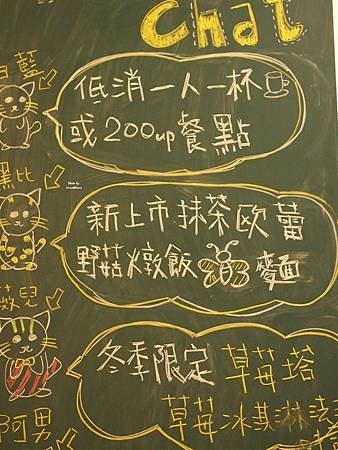 Chat
白藍
低消一人一杯
或200up餐點
黑比
新上市抹茶欧蕾
野菇燉飯 麥面
薇兒
冬季限定 草莓塔
草莓冰淇淋法
阿男